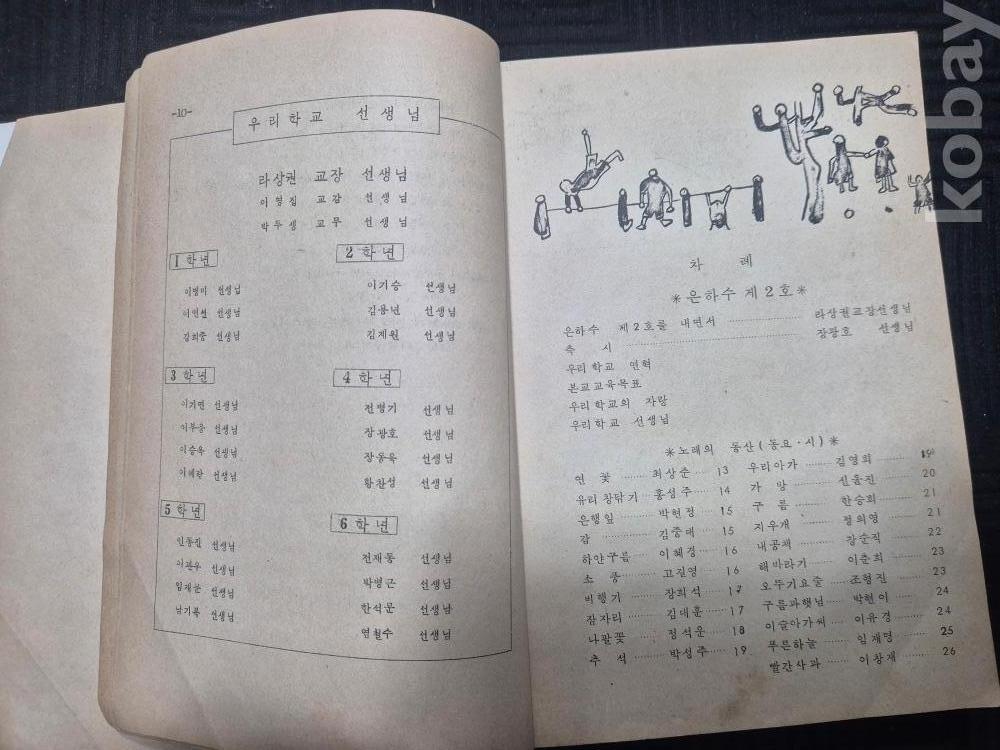 -10-
우리학교 선생님
라상권 교장 선생님
이영집 교감 선생님
박두생 교무 선생님
1학년
이병미 선생님
이연선 선생님
김희중 선생님
2학년
이기승 선생님
김용년 선생님
김제원 선생님
3학년
이기연 선생님
이부웅 선생님
이승욱 선생님
이혜란 선생님
4학년
전병기 선생님
장광호 선생님
장동욱 선생님
황찬성 선생님
5학년
인동진 선생님
이관우 선생님
임재균 선생님
남기복 선생님
6학년
전재동 선생님
박병근 선생님
한석문 선생님
염철수 선생님
차 례
*은하수 제2호*
은하수 제2호를 내면서 라상권교장선생님
축 시 장광호 선생님
우리학교 연혁
본교교육목표
우리학교의 자랑
우리학교 선생님
*노래의 동산(동요·시)*
연 꽃 최상순 13
유리창닦기 홍성주 14
은행잎 박현정 15
감 김중태 15
하얀구름 이혜경 16
소 풍 고길영 16
비행기 장희석 17
잠자리 김대훈 17
나팔꽃 정석운 18
추 석 박성주 19
우리아가 김영희 19
가 방 신율진 20
구 름 한승희 21
지우개 정의영 21
내공책 강순직 22
해바라기 이춘희 23
오뚜기요술 조형진 23
구름과햇님 박현이 24
이슬아가씨 이유경 24
푸른하늘 임재영 25
빨간사과 이창재 26
kobay